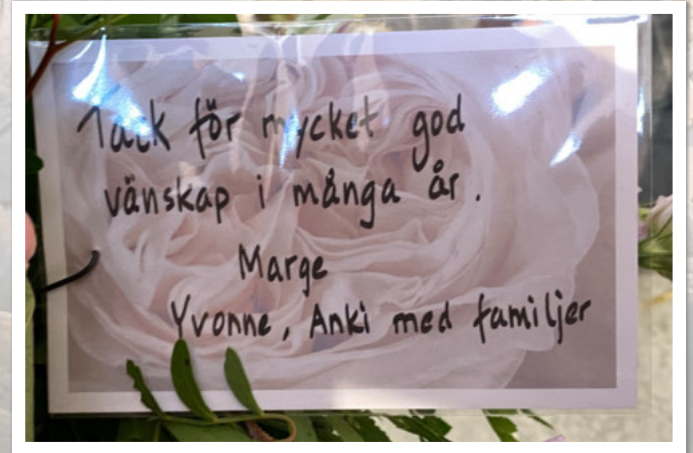 Tack för mycket god
vänskap i många år.
Marge
Yvonne, Anki med familjer